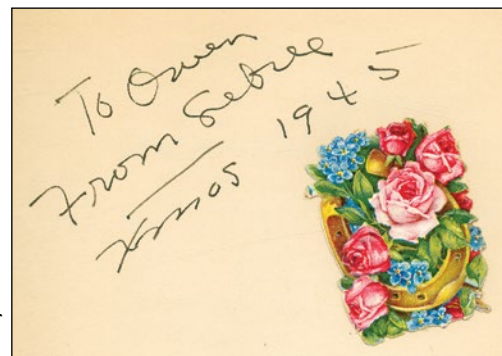 To Owen
From Sebree
Xmas 1945